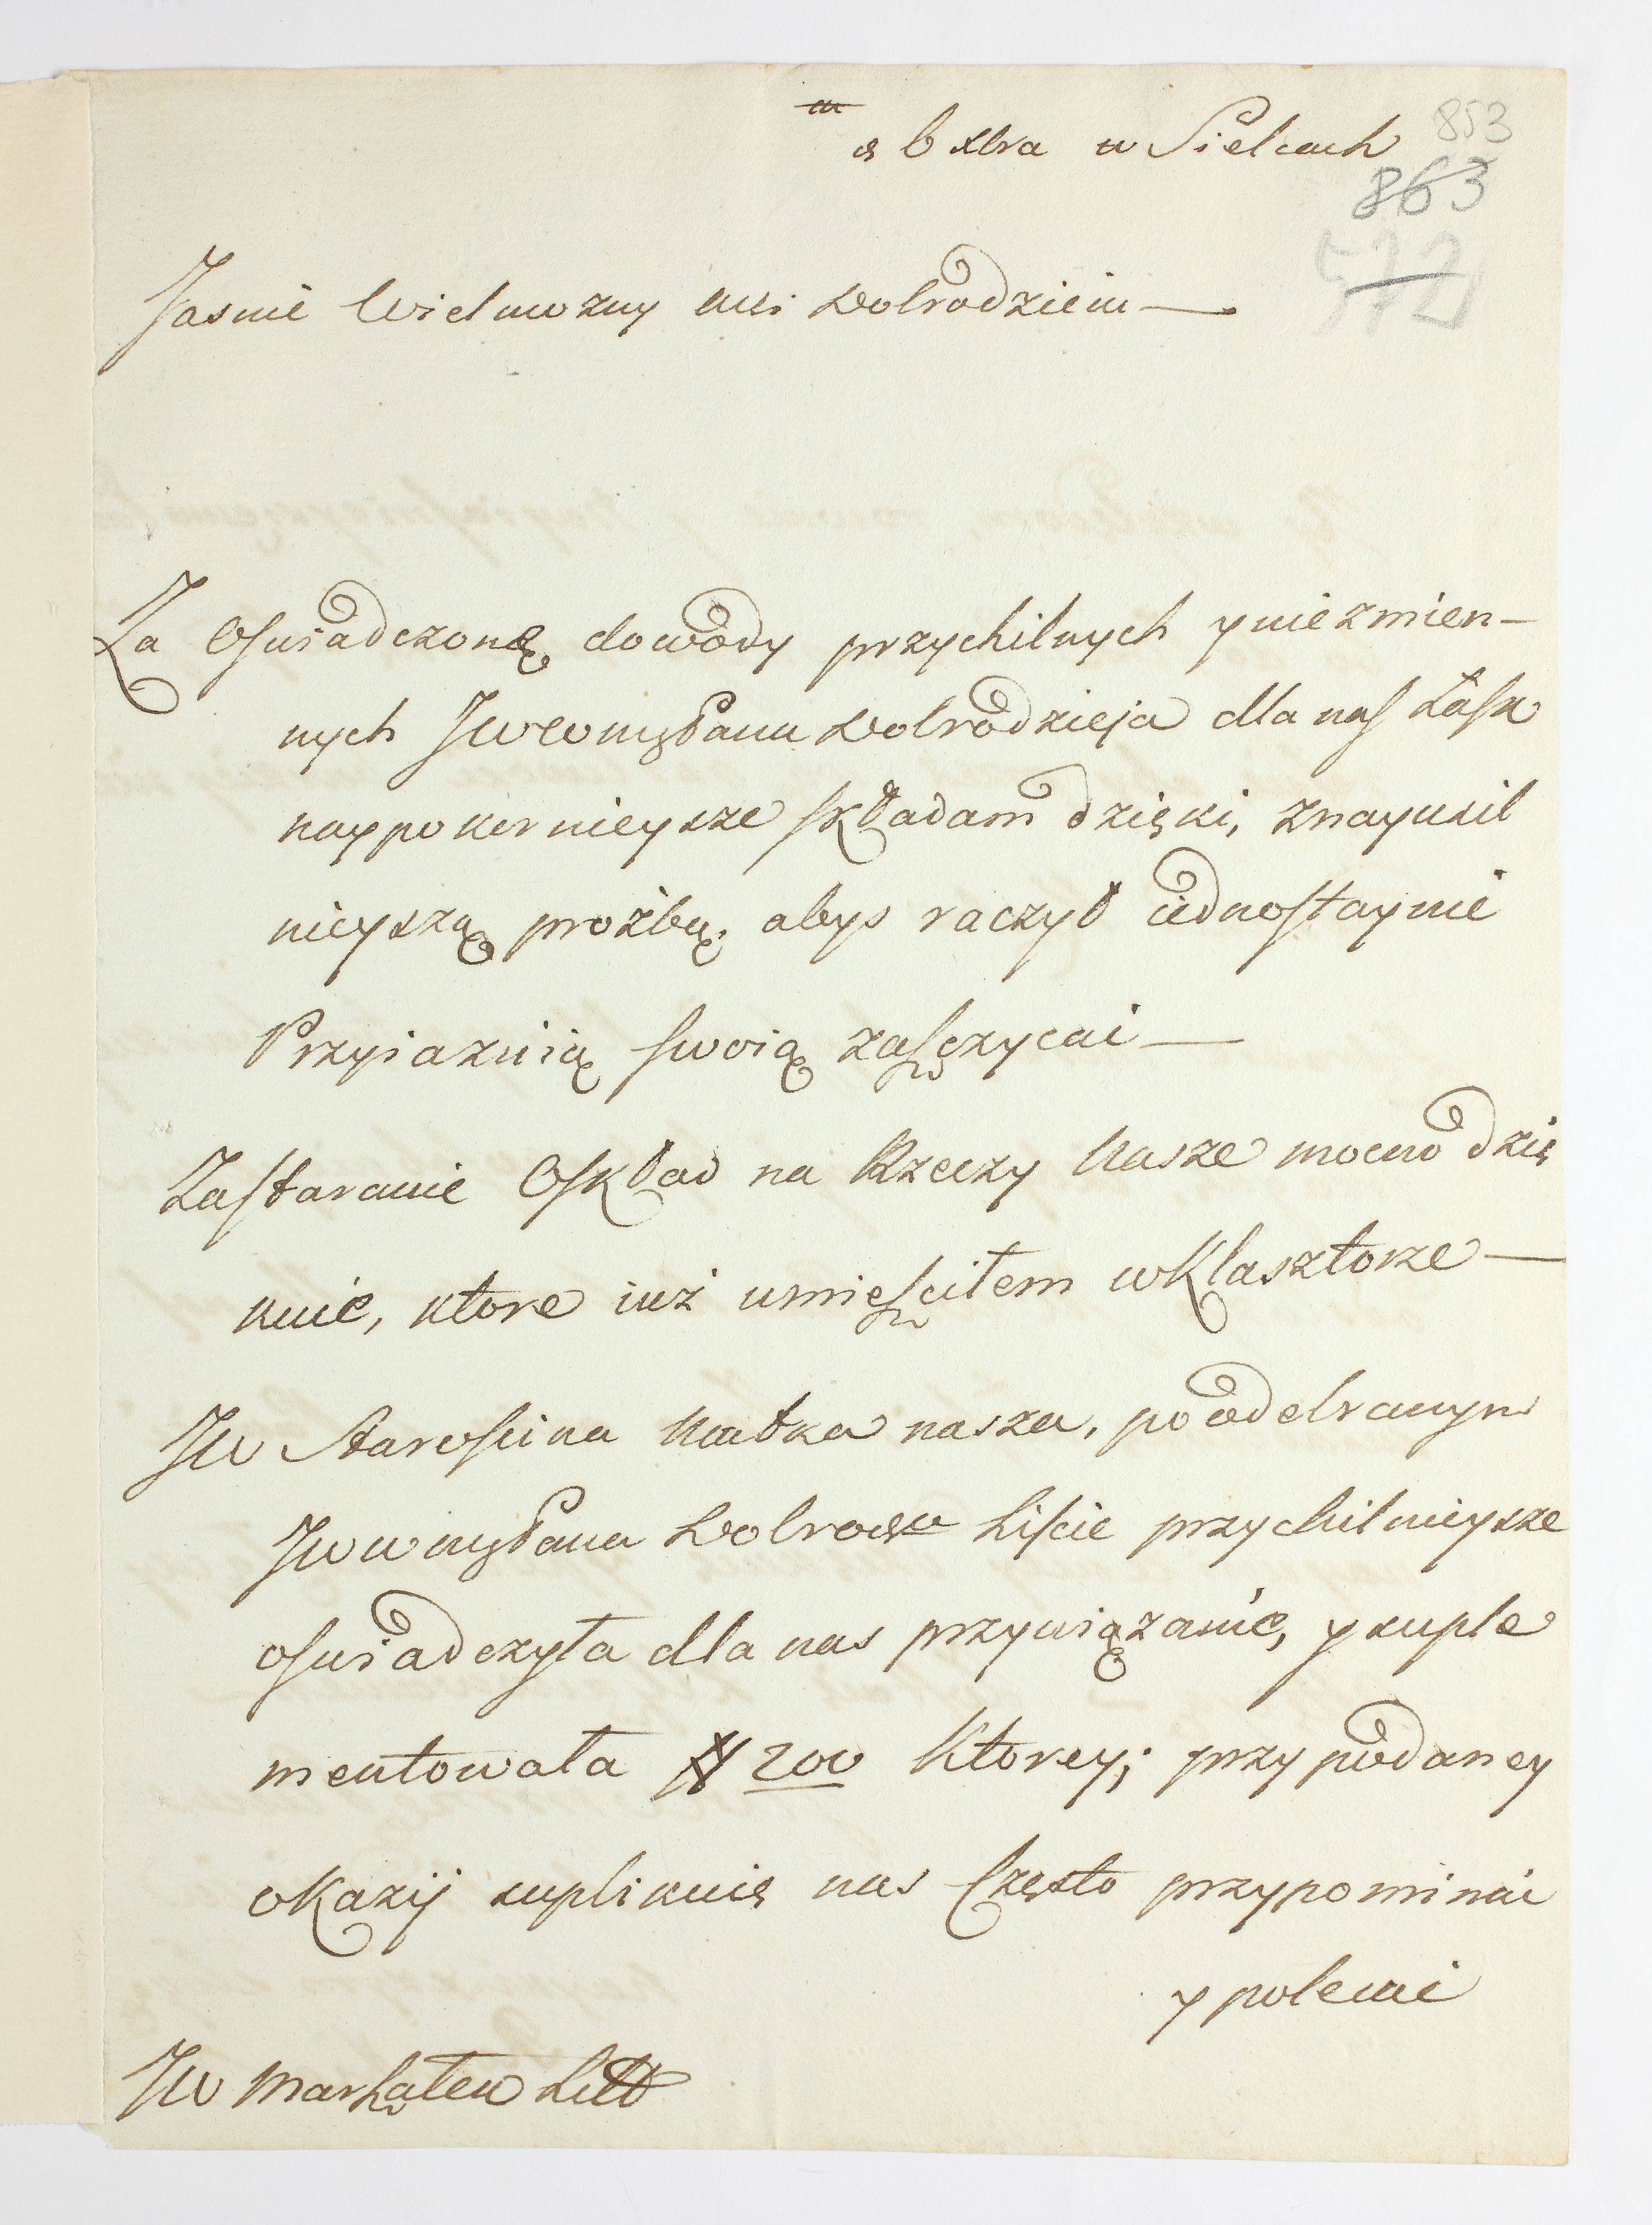 d 6 xbra w Sielcach
853
863
572
Jasnie Wielmozny Mci Dobrodzieiu —
Za Oswiadczone dowody przychilnych y niezmien-
nych JWWmgPana Dobrodzieja dla nas Łask
naypokornieysze składam dzięki, znayusil
nieyszą proźbą. abyś raczył iednostaynie
Przyiaznią swoią zaszczycai —
Zastaranie Oskład na Rzeczy Nasze mocno dzię
kuie, ktore iuż umieściłem wKlasztorze —
JW Starościna Matka nasza, po odebranym
JWWmgPana Dobrodza Liście przychilnieysze
oświadczyła dla nas przywiązanie, y suple
mentowała # 200 Ktorey; przy podaney
okazij suplikuię nas Często przypominać
y polecać
JW Marszałek Litt